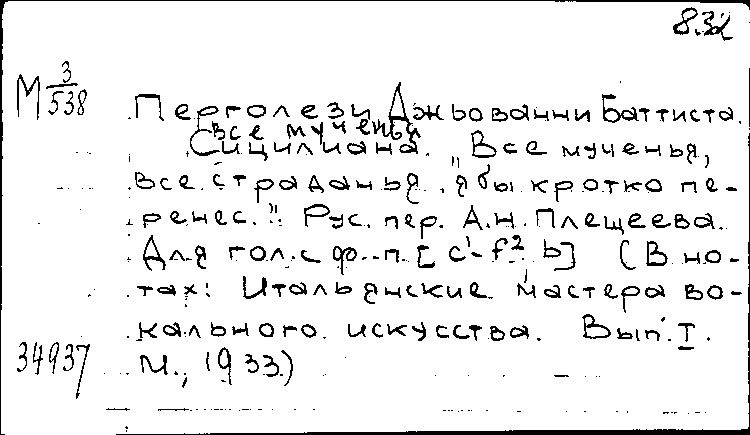 8.32
М 3/538
Перголези, Джьованни Баттиста.
все мученья
Сицилиана. „Все мученья,
все страданья, я бы кротко пе-
ренес." Рус. пер. А.Н. Плещеева.
Для гол. с ф.-п. [c¹-f², b] (В но-
тах: Итальянские мастера во-
кального искусства. Вып. I.
34937 М., 1933)